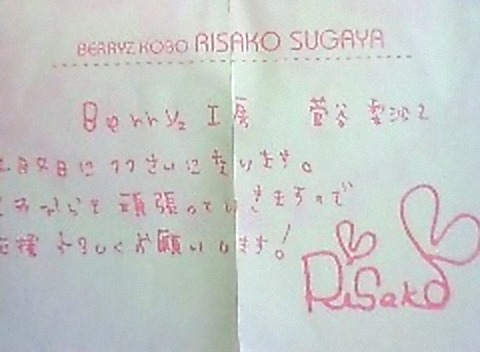 BERRYZ KOBO RISAKO SUGAYA
Berryz 工房 菅谷 梨沙子
月4日に 11さいになります。
これからも頑張っていきますので
応援よろしくお願いします!
Risako